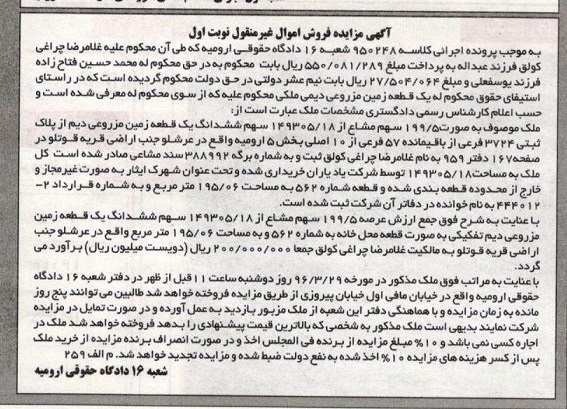 آگهی مزایده فروش اموال غیرمنقول نوبت اول
به موجب پرونده اجرائی کلاسه ۹۵۰۲۴۸ شعبه ۱۶ دادگاه حقوقی ارومیه که طی آن محکوم علیه غلامرضا چراغی
کولق فرزند عبداله به پرداخت مبلغ ۵۵۰/۰۸۱/۲۸۹ ریال بابت محکوم به در حق محکوم له محمد حسین فتاح زاده
فرزند یوسفعلی و مبلغ ۲۷/۵۰۴/۰۶۴ ریال بابت نیم عشر دولتی در حق دولت محکوم گردیده است که در راستای
استیفای حقوق محکوم له یک قطعه زمین مزروعی دیمی ملکی محکوم علیه که از سوی محکوم له معرفی شده است و
حسب اعلام کارشناس رسمی دادگستری مشخصات ملک عبارت است از:
ملک موصوف به صورت ۱۹۹/۵ سهم مشاع از ۱۴۹۳۰۵/۱۸ سهم ششدانگ یک قطعه زمین مزروعی دیم از پلاک
ثبتی ۳۷۲۴ فرعی از باقیمانده ۵۷ فرعی از ۱۰ اصلی بخش ۵ ارومیه واقع در عرشلو جنب اراضی قریه قوتلو در
صفحه ۱۶۷ دفتر ۹۵۹ به نام غلامرضا چراغی کولق ثبت و به شماره برگه ۳۸۸۹۹۲ سند مشاعی صادر شده است کل
ملک به مساحت ۱۴۹۳۰۵/۱۸ توسط شرکت یاد یاران خریداری شده و تحت عنوان شهرک ایثار به صورت غیرمجاز و
خارج از محدوده قطعه بندی شده و قطعه شماره ۵۶۲ به مساحت ۱۹۵/۰۶ متر مربع و به شماره قرارداد ۲-
۴۴۴۰۱۲ به نام خوانده در دفاتر آن شرکت ثبت شده است.
با عنایت به شرح فوق جمع ارزش عرصه ۱۹۹/۵ سهم مشاع از ۱۴۹۳۰۵/۱۸ سهم ششدانگ یک قطعه زمین
مزروعی دیم تفکیکی به صورت قطعه محل خانه به شماره ۵۶۲ و به مساحت ۱۹۵/۰۶ متر مربع واقع در عرشلو جنب
اراضی قریه قوتلو به مالکیت غلامرضا چراغی کولق جمعا ۲۰۰/۰۰۰/۰۰۰ ریال (دویست میلیون ریال) برآورد می
گردد.
با عنایت به مراتب فوق ملک مذکور در مورخه ۹۶/۳/۲۹ روز دوشنبه ساعت ۱۱ قبل از ظهر در دفتر شعبه ۱۶ دادگاه
حقوقی ارومیه واقع در خیابان مافی اول خیابان پیروزی از طریق مزایده فروخته خواهد شد طالبین می توانند پنج روز
مانده به زمان مزایده و با هماهنگی دفتر این شعبه از ملک مزبور بازدید به عمل آورده و در صورت تمایل در مزایده
شرکت نمایند بدیهی است ملک مذکور به شخصی که بالاترین قیمت پیشنهادی را بدهد فروخته خواهد شد ملک در
اجاره کسی نمی باشد و ۱۰% مبلغ مزایده از برنده فی المجلس اخذ و در صورت انصراف برنده مزایده از خرید ملک
پس از کسر هزینه های مزایده ۱۰% اخذ شده به نفع دولت ضبط شده و مزایده تجدید خواهد شد. م الف ۲۵۹
شعبه ۱۶ دادگاه حقوقی ارومیه